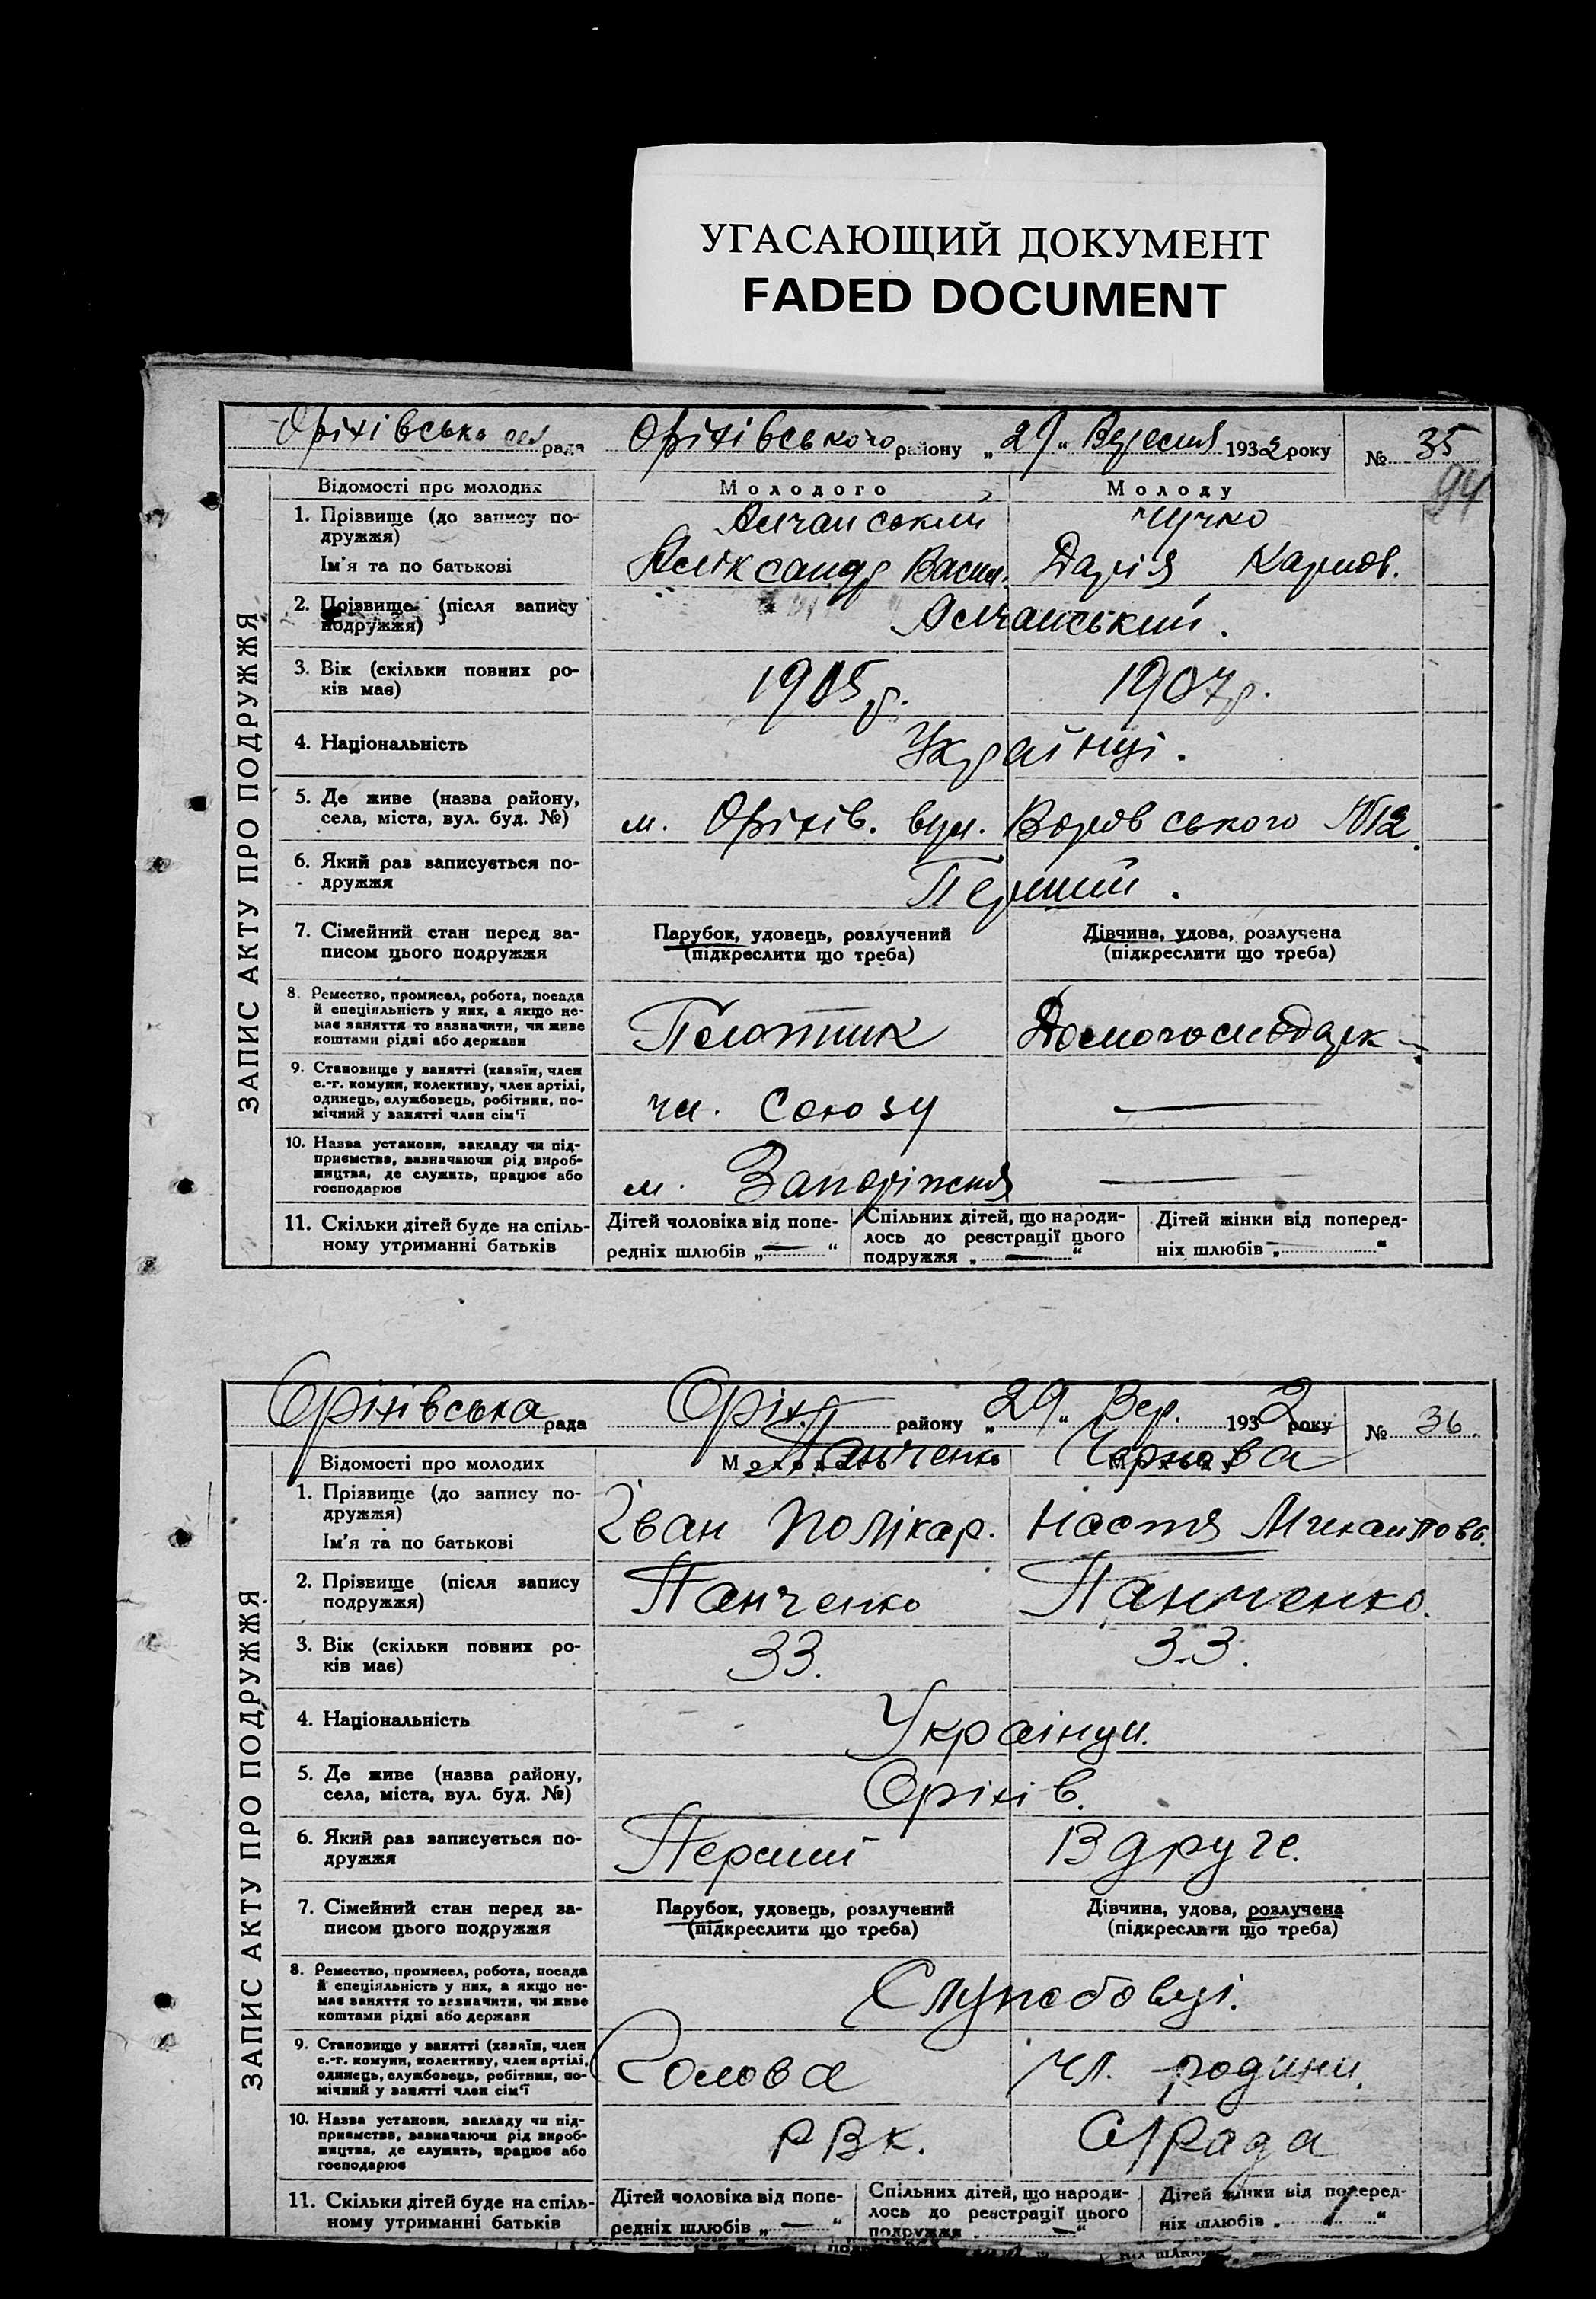 УГАСАЮЩИЙ ДОКУМЕНТ
FADED DOCUMENT
Оріхівська сел рада Оріхівського району „29“ Вересня 1932 року № 35
94
ЗАПИС АКТУ ПРО ПОДРУЖЖЯ
Відомості про молодих Молодого Молоду
1. Прізвище (до запису по-
дружжя)
Ім'я та по батькові Василь. Дарія Карпов.
2. Прізвище (після запису
подружжя)
3. Вік (скільки повних ро-
ків має) 1905 р. 1907 р.
4. Національність Українці.
5. Де живе (назва району,
села, міста, вул. буд. №) м. Оріхів. вул. Воровського №12.
6. Який раз записується по-
дружжя Перший.
7. Сімейний стан перед за- Парубок, удовець, розлучений Дівчина, удова, розлучена
писом цього подружжя (підкреслити що треба) (підкреслити що треба)
8. Ремество, промисел, робота, посада
й спеціяльність у них, а якщо не-
має заняття то зазначити, чи живе
коштами рідні або держави Плотник
9. Становище у занятті (хазяїн, член
с.-г. комуни, колективу, член артілі,
одинець, службовець, робітник, по-
мічний у занятті член сім'ї чл. Союзу —
10. Назва установи, закладу чи під-
приємства, зазначаючи рід вироб-
ництва, де служить, працює або
господарює м. Запоріжжя —
11. Скільки дітей буде на спіль- Дітей чоловіка від попе- Спільних дітей, що народи- Дітей жінки від поперед-
ному утриманні батьків редніх шлюбів „—“ лось до реєстрації цього ніх шлюбів „ “
подружжя „—“
Оріхівська рада Оріх. району „29“ Вер. 1932 року № 36.
ЗАПИС АКТУ ПРО ПОДРУЖЖЯ
Відомості про молодих Молодого Панченко Молоду Чернова
1. Прізвище (до запису по-
дружжя)
Ім'я та по батькові Іван Полікар. Настя
2. Прізвище (після запису
подружжя) Панченко Панченко.
3. Вік (скільки повних ро-
ків має) 33. 33.
4. Національність Українци.
5. Де живе (назва району,
села, міста, вул. буд. №) Оріхів.
6. Який раз записується по-
дружжя Перший Вдруге.
7. Сімейний стан перед за- Парубок, удовець, розлучений Дівчина, удова, розлучена
писом цього подружжя (підкреслити що треба) (підкреслити що треба)
8. Ремество, промисел, робота, посада
й спеціяльність у них, а якщо не-
має заняття то зазначити, чи живе
коштами рідні або держави Службовці.
9. Становище у занятті (хазяїн, член
с.-г. комуни, колективу, член артілі,
одинець, службовець, робітник, по-
мічний у занятті член сім'ї Голова чл. родини.
10. Назва установи, закладу чи під-
приємства, зазначаючи рід вироб-
ництва, де служить, працює або
господарює РВК.
11. Скільки дітей буде на спіль- Дітей чоловіка від попе- Спільних дітей, що народи- Дітей жінки від поперед-
ному утриманні батьків редніх шлюбів „—“ лось до реєстрації цього ніх шлюбів „1“
подружжя „—“